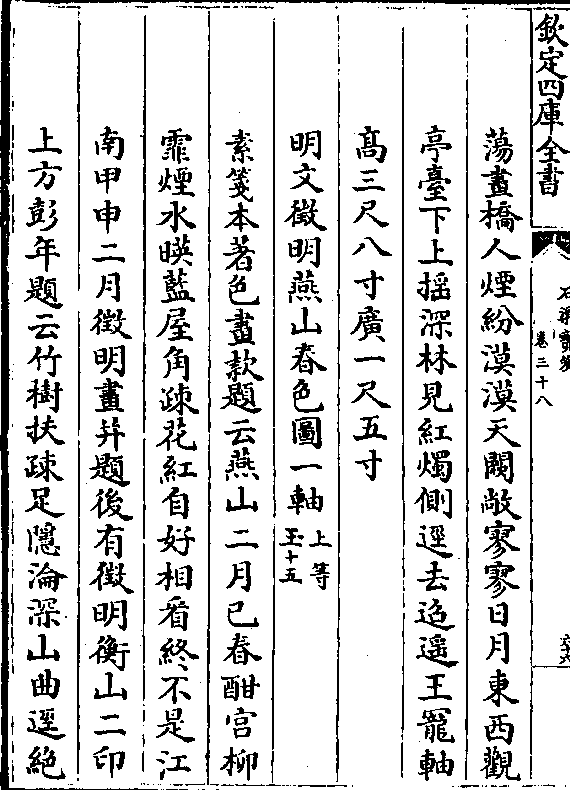 欽定四庫全書
石渠寶笈
卷三十八
蕩畫橋人煙紛漠漠天闕敞寥寥日月東西觀
亭臺下上揺深林見紅燭側逕去迢遥王寵軸
髙三尺八寸廣一尺五寸
明文徵明燕山春色圖一軸上等玉十五
素箋本著色畫款題云燕山二月已春酣宫柳
霏煙水暎藍屋角疎花紅自好相看終不是江
南甲申二月徵明畫并題後有徵明衡山二印
上方彭年題云竹樹扶疎足隱淪深山曲逕絶